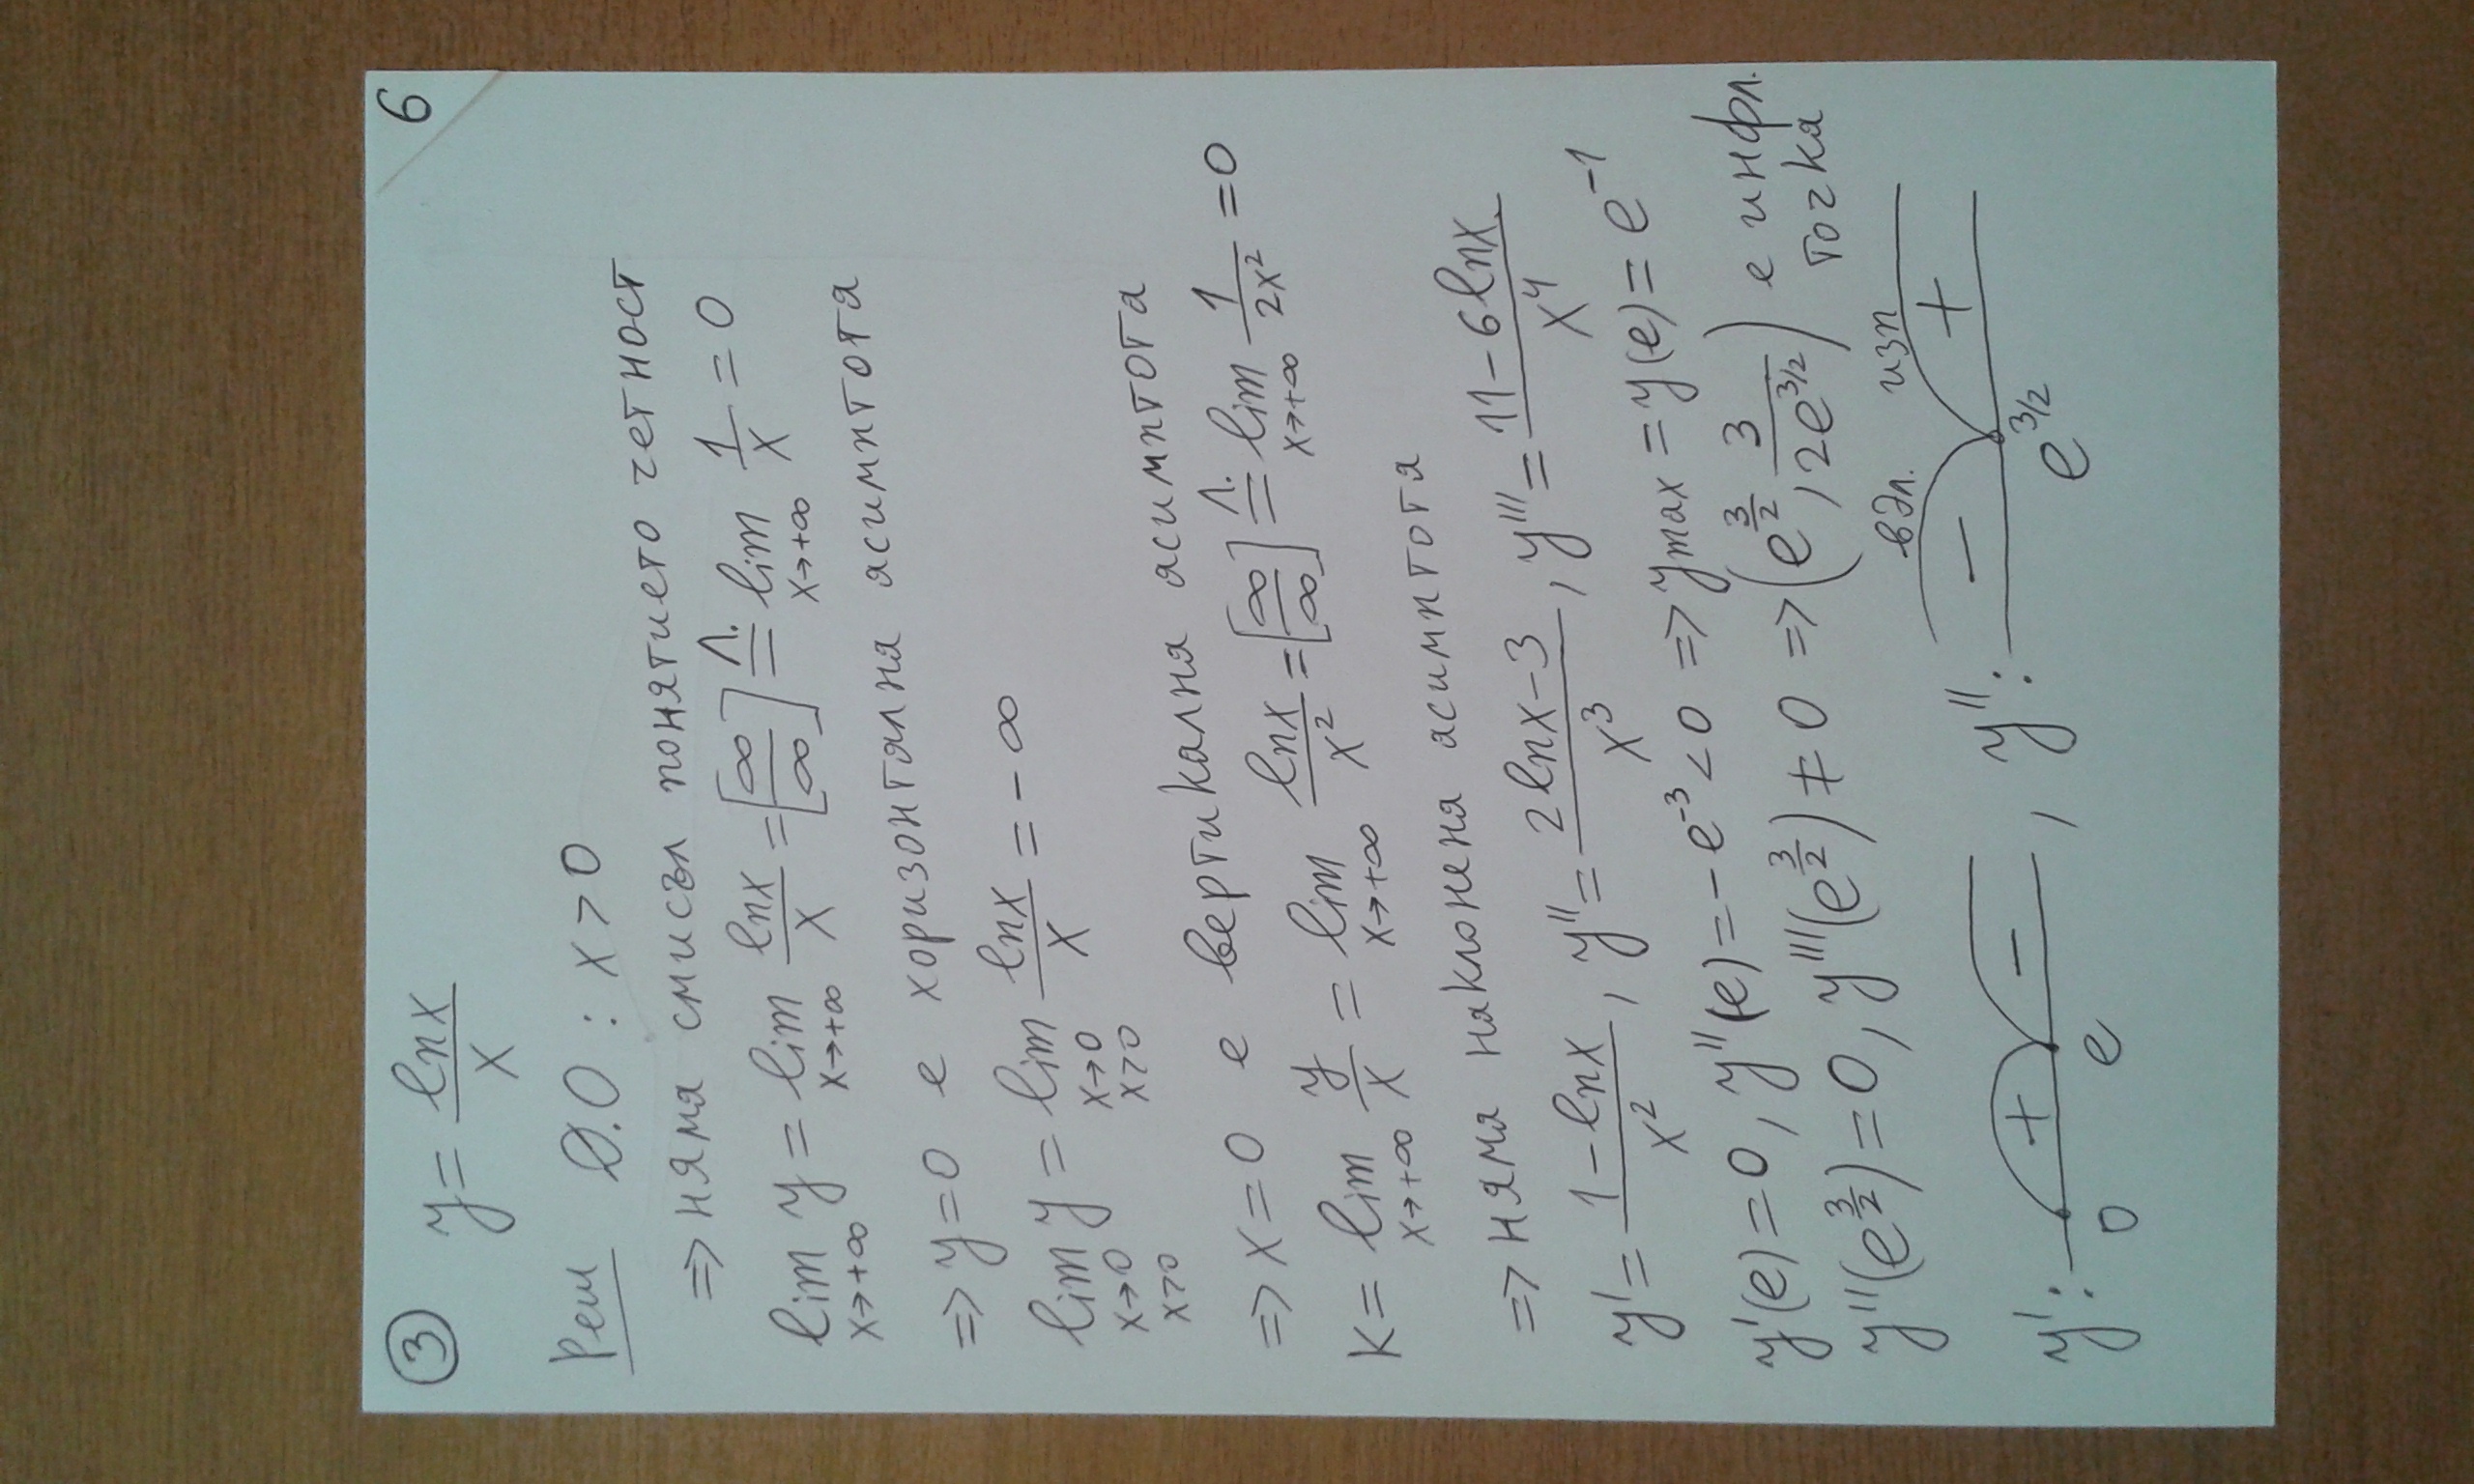 ③ y = lnx / x
6
Реш Д.О : x > 0
=> няма смисъл понятието четност
lim x→+∞ y = lim x→+∞ lnx / x = [∞/∞] Л.= lim x→+∞ 1/x = 0
=> y = 0 е хоризонтална асимптота
lim x→0 x>0 y = lim x→0 x>0 lnx / x = -∞
=> x = 0 е вертикална асимптота
K = lim x→+∞ y/x = lim x→+∞ lnx / x² = [∞/∞] Л.= lim x→+∞ 1/2x² = 0
=> няма наклонена асимптота
y' = 1-lnx / x², y'' = 2lnx-3 / x³, y''' = 11-6lnx / x⁴
y'(e) = 0, y''(e) = -e⁻³ < 0 => ymax = y(e) = e⁻¹
y''(e^3/2) = 0, y'''(e^3/2) ≠ 0 => (e^3/2, 3/2e^3/2) е инфл. точка
y': 0 + e - , y'': вдл. - e^3/2 изп +